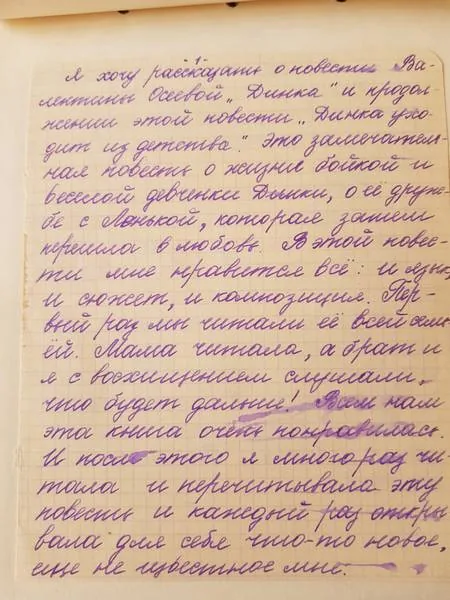 Я хочу рассказать о повести Ва-
лентины Осеевой „Динка" и продол-
жении этой повести „Динка ухо-
дит из детства". Это замечатель-
ная повесть о жизни бойкой и
веселой девченки Динки, о её друж-
бе с Ленькой, которая затем
перешла в любовь. В этой повес-
ти мне нравится всё: и язык,
и сюжет, и композиция. Пер-
вый раз мы читали её всей семь-
ёй. Мама читала, а брат и
я с восхищением слушали,
что будет дальше! Всем нам
эта книга очень понравилась.
И после этого я много раз чи-
тала и перечитывала эту
повесть и каждый раз откры
вала для себя что-то новое,
еще не известное мне.